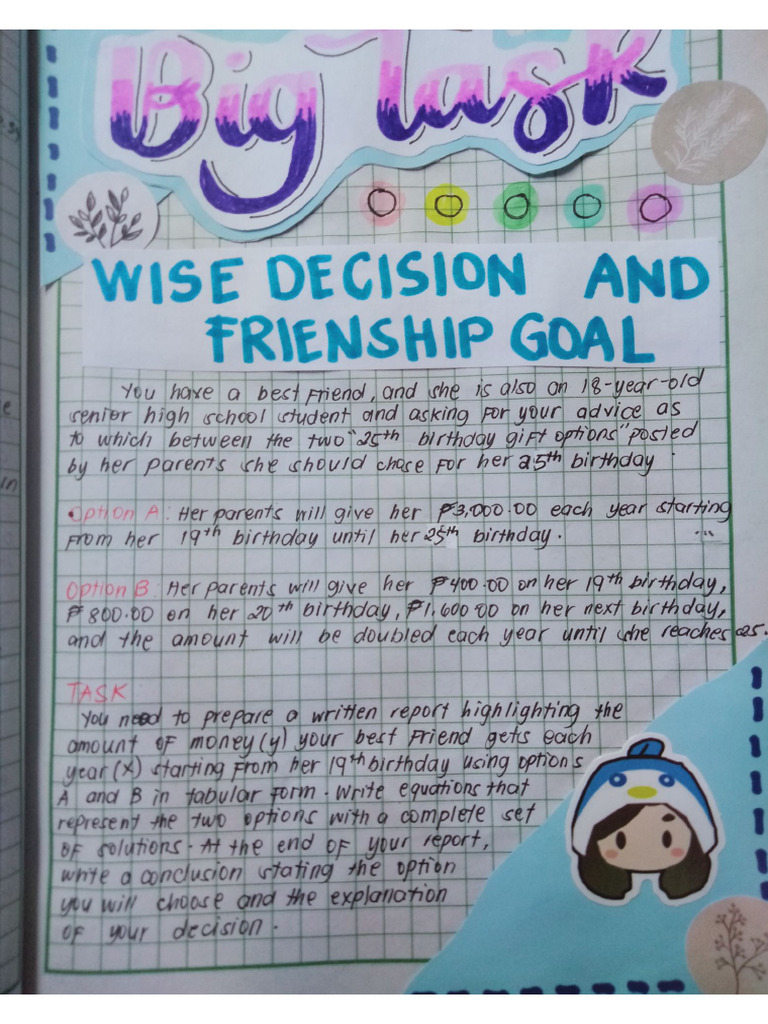 Big Task
WISE DECISION AND
FRIENSHIP GOAL
You have a best friend, and she is also an 18-year-old
senior high school student and asking for your advice as
to which between the two "25th birthday gift options" posted
by her parents she should chose for her 25th birthday.
Option A: Her parents will give her ₱3,000.00 each year starting
from her 19th birthday until her 25th birthday.
Option B: Her parents will give her ₱400.00 on her 19th birthday,
₱800.00 on her 20th birthday, ₱1,600.00 on her next birthday,
and the amount will be doubled each year until she reaches 25.
TASK
You need to prepare a written report highlighting the
amount of money (y) your best friend gets each
year (x) starting from her 19th birthday using options
A and B in tabular form. Write equations that
represent the two options with a complete set
of solutions. At the end of your report,
write a conclusion stating the option
you will choose and the explanation
of your decision.